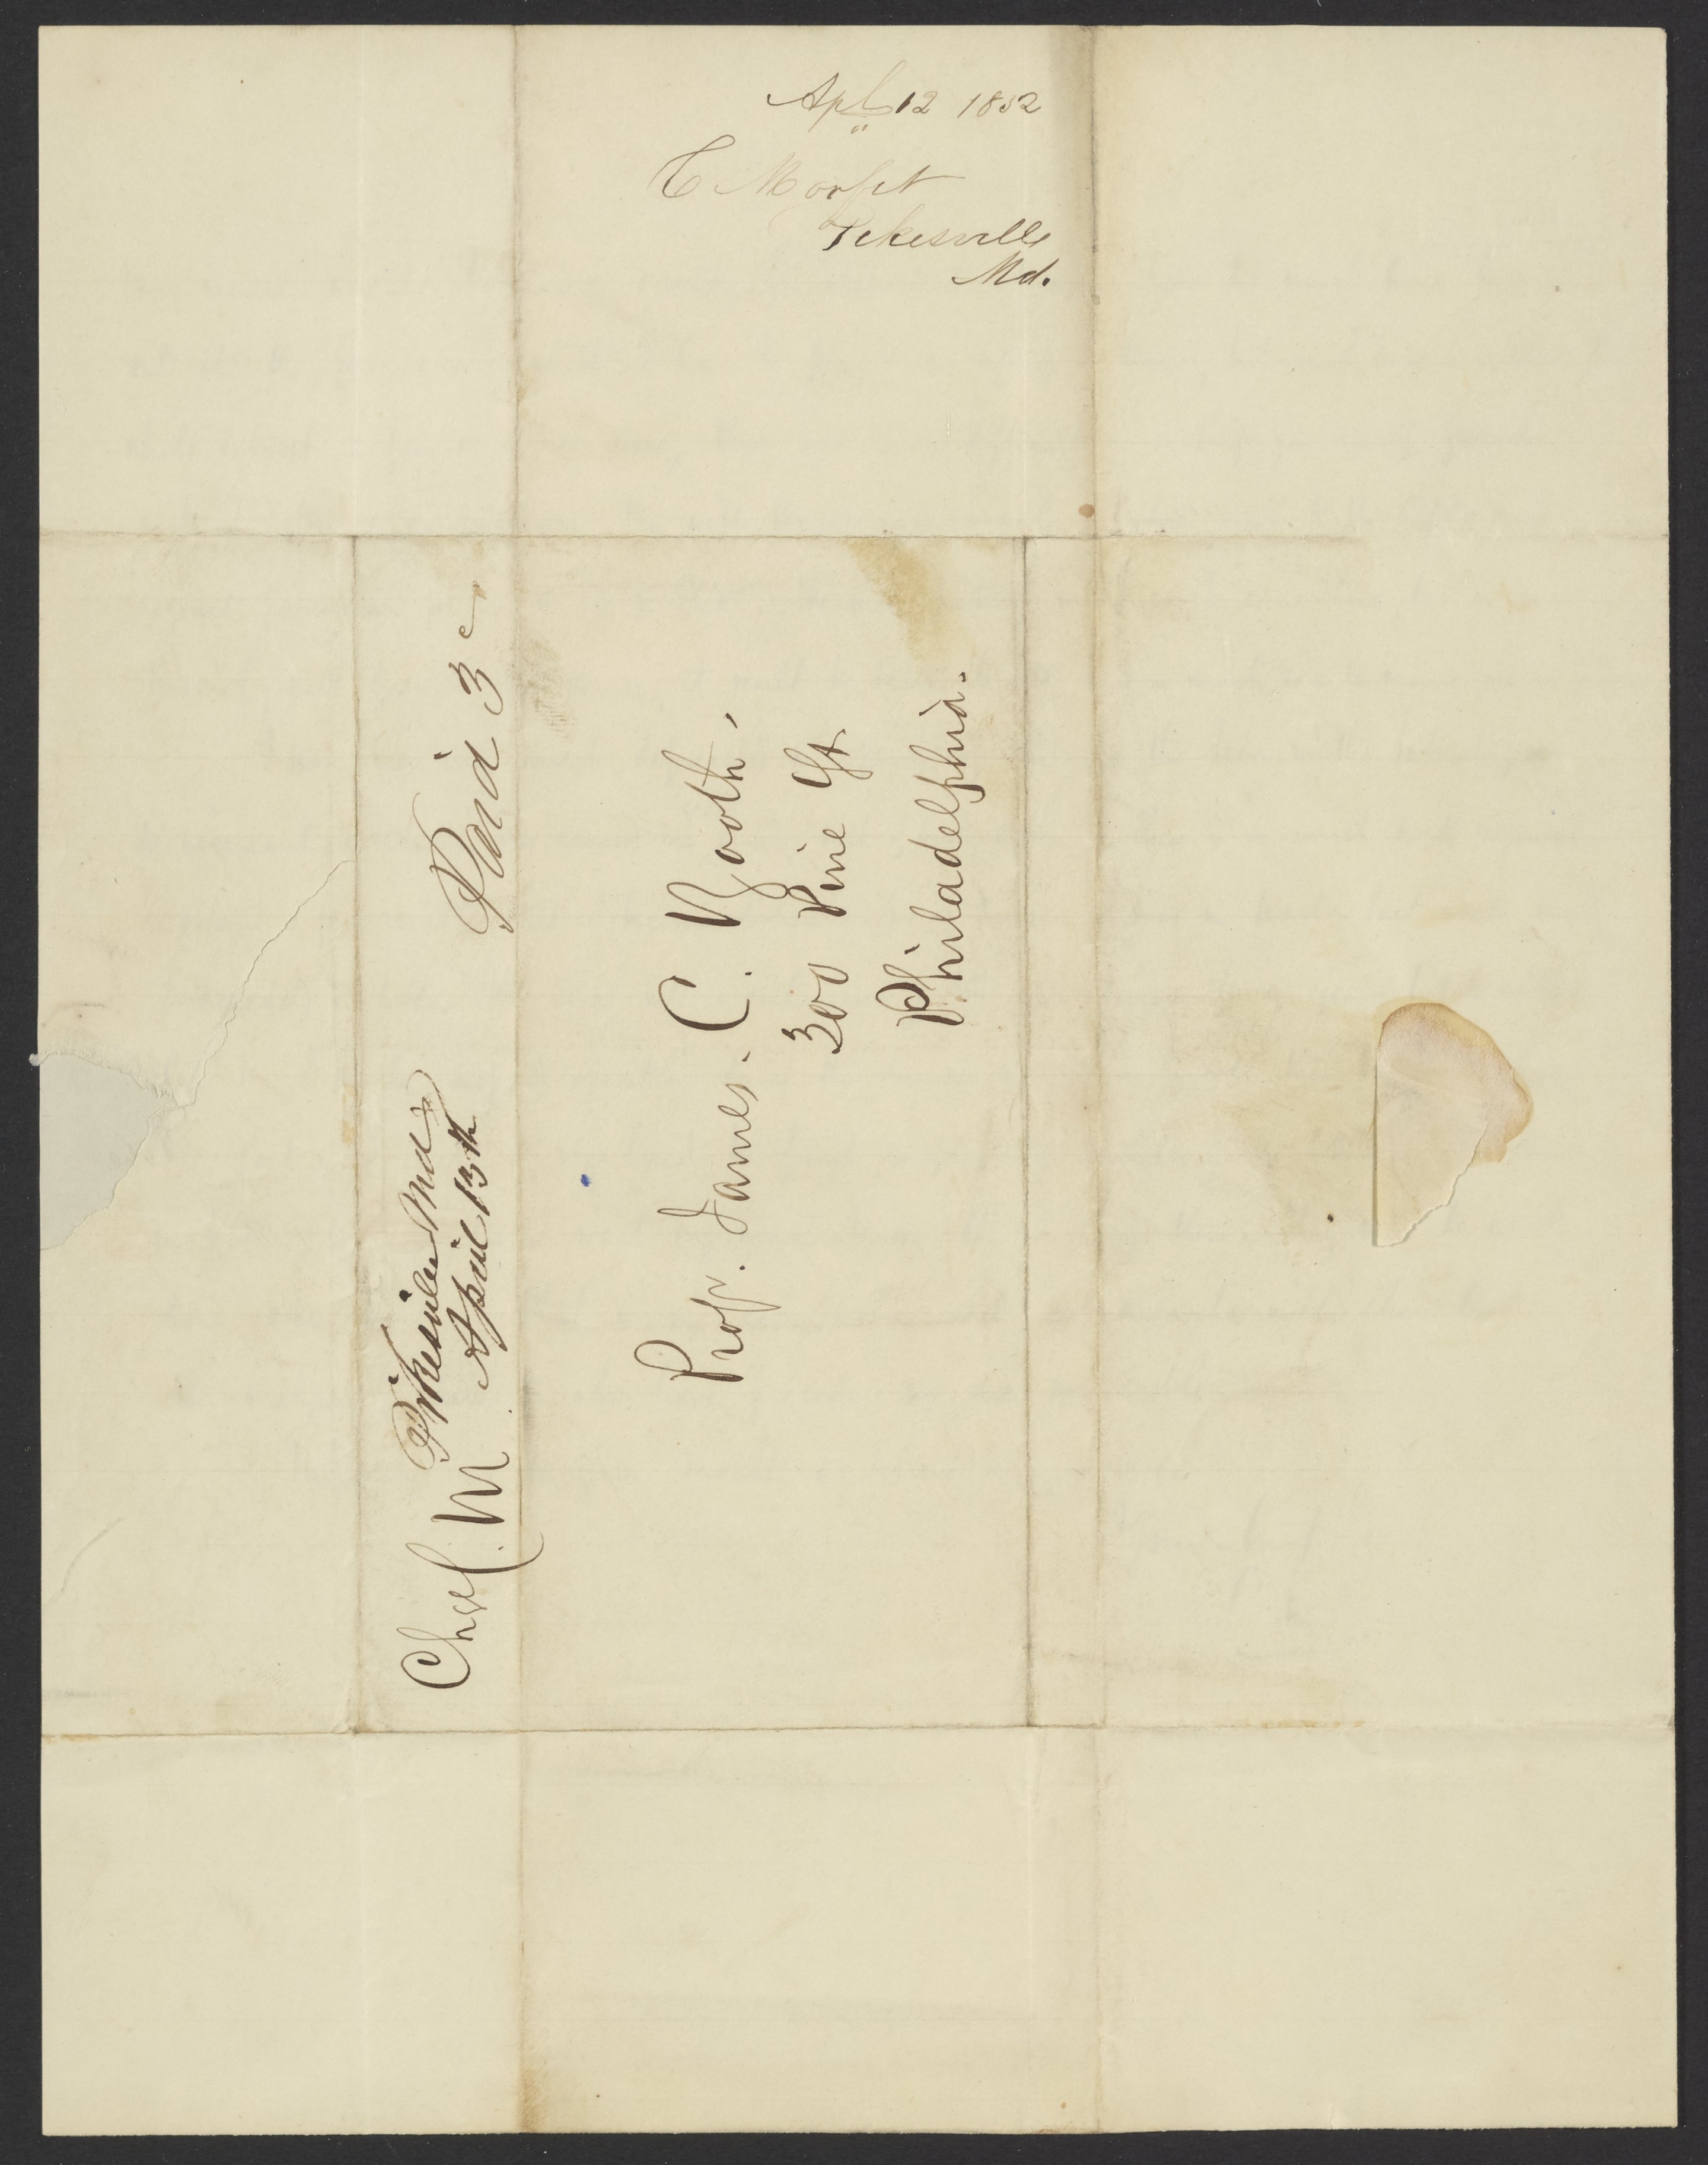 Apl 12 1852
C Morfit
Pikesville
Md.
Paid 3c
Pikesville Md
April 13th
Prof. James. C. Booth,
300 Pine St.
Philadelphia.